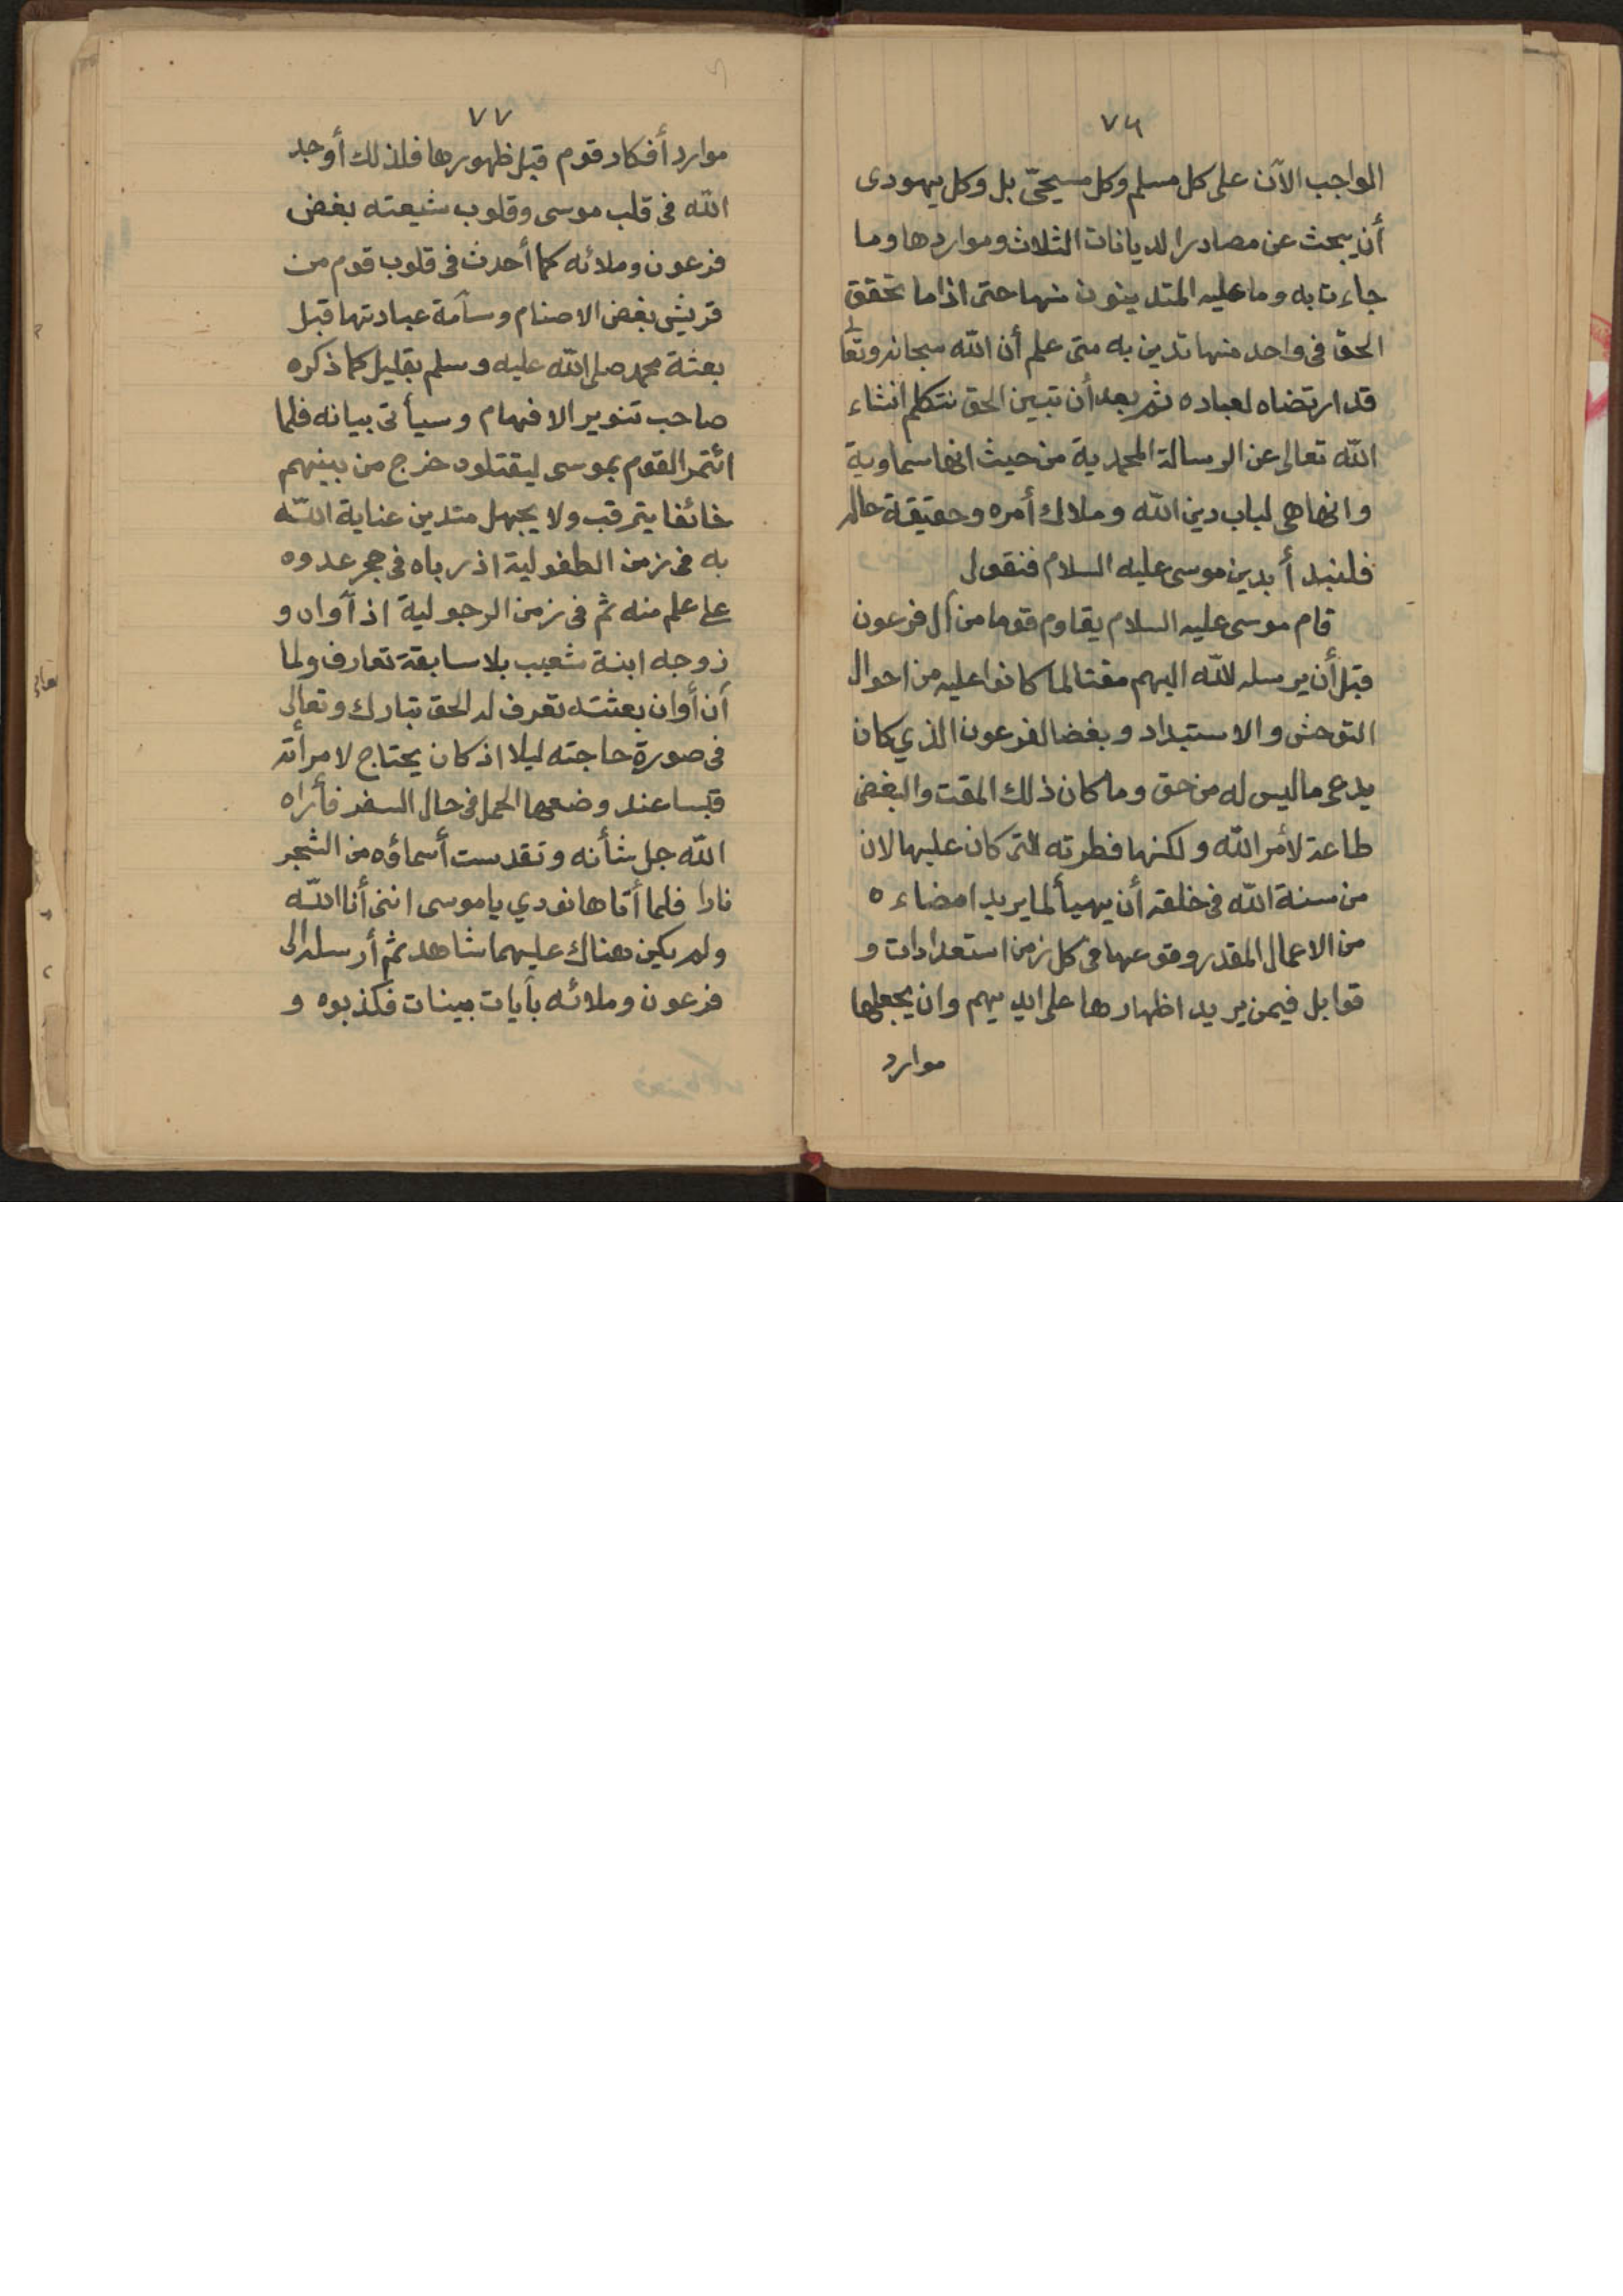 ٧٦
الواجب الآن على كل مسلم وكل مسيحيّ بل وكل يهودى
أن يبحث عن مصادر الديانات الثلاث ومواردها وما
جاءت به وما عليه المتدينون منها حتى اذا ما تحقق
الحق فى واحد منها تدين به متى علم أن الله سبحانه وتعالى
قد ارتضاه لعباده ثم بعد أن تبين الحق نتكلم انشاء
الله تعالى عن الرسالة المحمدية من حيث انها سماوية
وانها هى لباب دين الله وملاك أمره وحقيقة حاله
فلنبدأ بدين موسى عليه السلام فنقول
قام موسى عليه السلام يقاوم قوما من آل فرعون
قبل أن يرسله الله اليهم مقتا لما كانوا عليه من احوال
التوحش والاستبداد وبغضا لفرعون الذي كان
يدعى ما ليس له من حق وما كان ذلك المقت والبغض
طاعة لأمر الله ولكنها فطرته التى كان عليها لان
من سنة الله فى خلقه أن يهيأ لما يريد امضاءه
من الاعمال المقدر وقوعها فى كل زمن استعدادات و
قوابل فيمن يريد اظهارها على ايديهم وان يجعلها
موارد
٧٧
موارد أفكار قوم قبل ظهورها فلذلك أوجد
الله فى قلب موسى وقلوب شيعته بغض
فرعون وملائه كما أحدث فى قلوب قوم من
قريش بغض الاصنام وسآمة عبادتها قبل
بعثة محمد صلى الله عليه وسلم بقليل كما ذكره
صاحب تنوير الافهام وسيأتى بيانه فلما
ائتمر القوم بموسى ليقتلوه خرج من بينهم
خائفا يترقب ولا يجهل متدين عناية الله
به فى زمن الطفولية اذ رباه فى حجر عدوه
على علم منه ثم فى زمن الرجولية اذ آواه و
زوجه ابنة شعيب بلا سابقة تعارف ولما
آن أوان بعثته تعرف له الحق تبارك وتعالى
فى صورة حاجته ليلا اذ كان يحتاج لامرأته
قبسا عند وضعها الحمل فى حال السفر فأراه
الله جل شأنه وتقدست أسماؤه من الشجر
نارا فلما أتاها نودي يا موسى اننى أنا الله
ولم يكن هناك عليهما شاهد ثم أرسله الى
فرعون وملائه بأيات بينات فكذبوه و